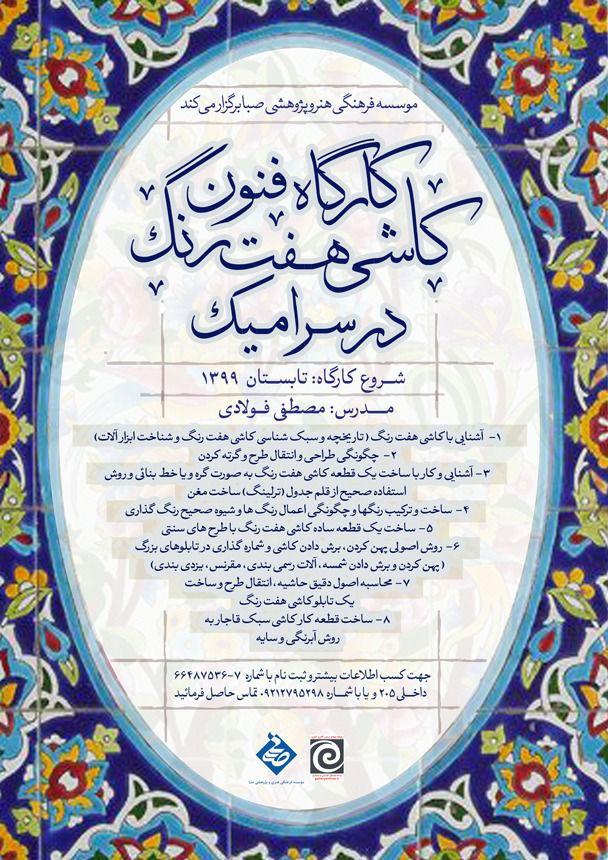 موسسه فرهنگی هنر و پژوهشی صبا برگزار می‌کند
کارگاه فنون
کاشی هفت رنگ
در سرامیک
شروع کارگاه: تابستان ۱۳۹۹
مدرس: مصطفی فولادی
۱- آشنایی با کاشی هفت رنگ ( تاریخچه و سبک شناسی کاشی هفت رنگ و شناخت ابزار آلات)
۲- چگونگی طراحی و انتقال طرح و گرته کردن
۳- آشنایی و کار با ساخت یک قطعه کاشی هفت رنگ به صورت گره و یا خط بنائی و روش
استفاده صحیح از قلم جدول (ترلینگ) ساخت مغن
۴- ساخت و ترکیب رنگها و چگونگی اعمال رنگ ها و شیوه صحیح رنگ گذاری
۵- ساخت یک قطعه ساده کاشی هفت رنگ با طرح های سنتی
۶- روش اصولی پهن کردن، برش دادن کاشی و شماره گذاری در تابلوهای بزرگ
( پهن کردن و برش دادن شمسه، آلات رسمی بندی، مقرنس، یزدی بندی)
۷- محاسبه اصول دقیق حاشیه، انتقال طرح و ساخت
یک تابلو کاشی هفت رنگ
۸- ساخت قطعه کار کاشی سبک قاجار به
روش آبرنگی و سایه
جهت کسب اطلاعات بیشتر و ثبت نام با شماره ۷-۶۶۴۸۷۵۳۶
داخلی ۲۰۵ و یا با شماره ۰۹۲۱۲۷۹۵۲۹۸ تماس حاصل فرمائید
موسسه فرهنگی هنری و پژوهشی صبا